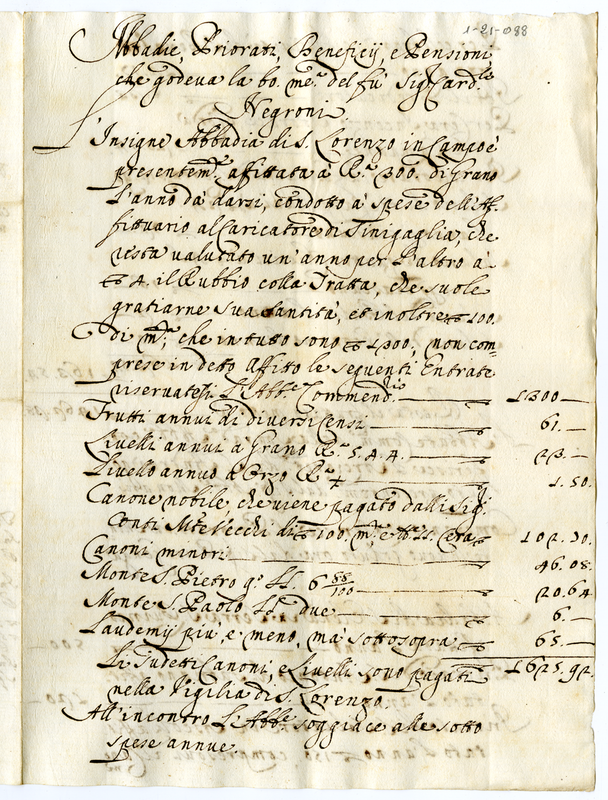 1-21-088
Abbadie, Priorati, Beneficij, e Pensioni
che godeva la bo. me. del fu Sig. Card.le
Negroni.
L'Insigne Abbadia di S. Lorenzo in Campo è
presentem.te affittata à R.a 300. di Grano
l'anno da darsi, condotto à spese dell'Af-
fittuario al Caricatore di Sinigaglia, che
resta valutato un'anno per l'altro à
4. il Rubbio colla Tratta, che suole
gratiarne Sua Santità, et inoltre 100.
di m.ta, che in tutto sono 1300, non com-
prese in detto Affitto le seguenti Entrate
riservatesi l'Abb.e Commend.rio 1300 —
Frutti annui di diversi Censi 61. —
Livelli annui à Grano R.a 5. 4. 4. 23. —
Livello annuo d'Orzo R.a 1. 50.
Canone nobile, che viene pagato dalli Sig.ri
Conti M.te Vecchi di 100. m.ta e lb. cera 102. 30.
Canoni minori 46. 08.
Monte S. Pietro q.o LL. 6 88/100 20. 64
Monte S. Paolo LL. due 6. —
Laudemij più, e meno, mà sottosopra 65. —
Li sudetti Canoni, e Livelli sono pagati 1625. 92.
nella Vigilia di S. Lorenzo.
All'incontro l'Abb.e soggiace alle sotto
spese annue.